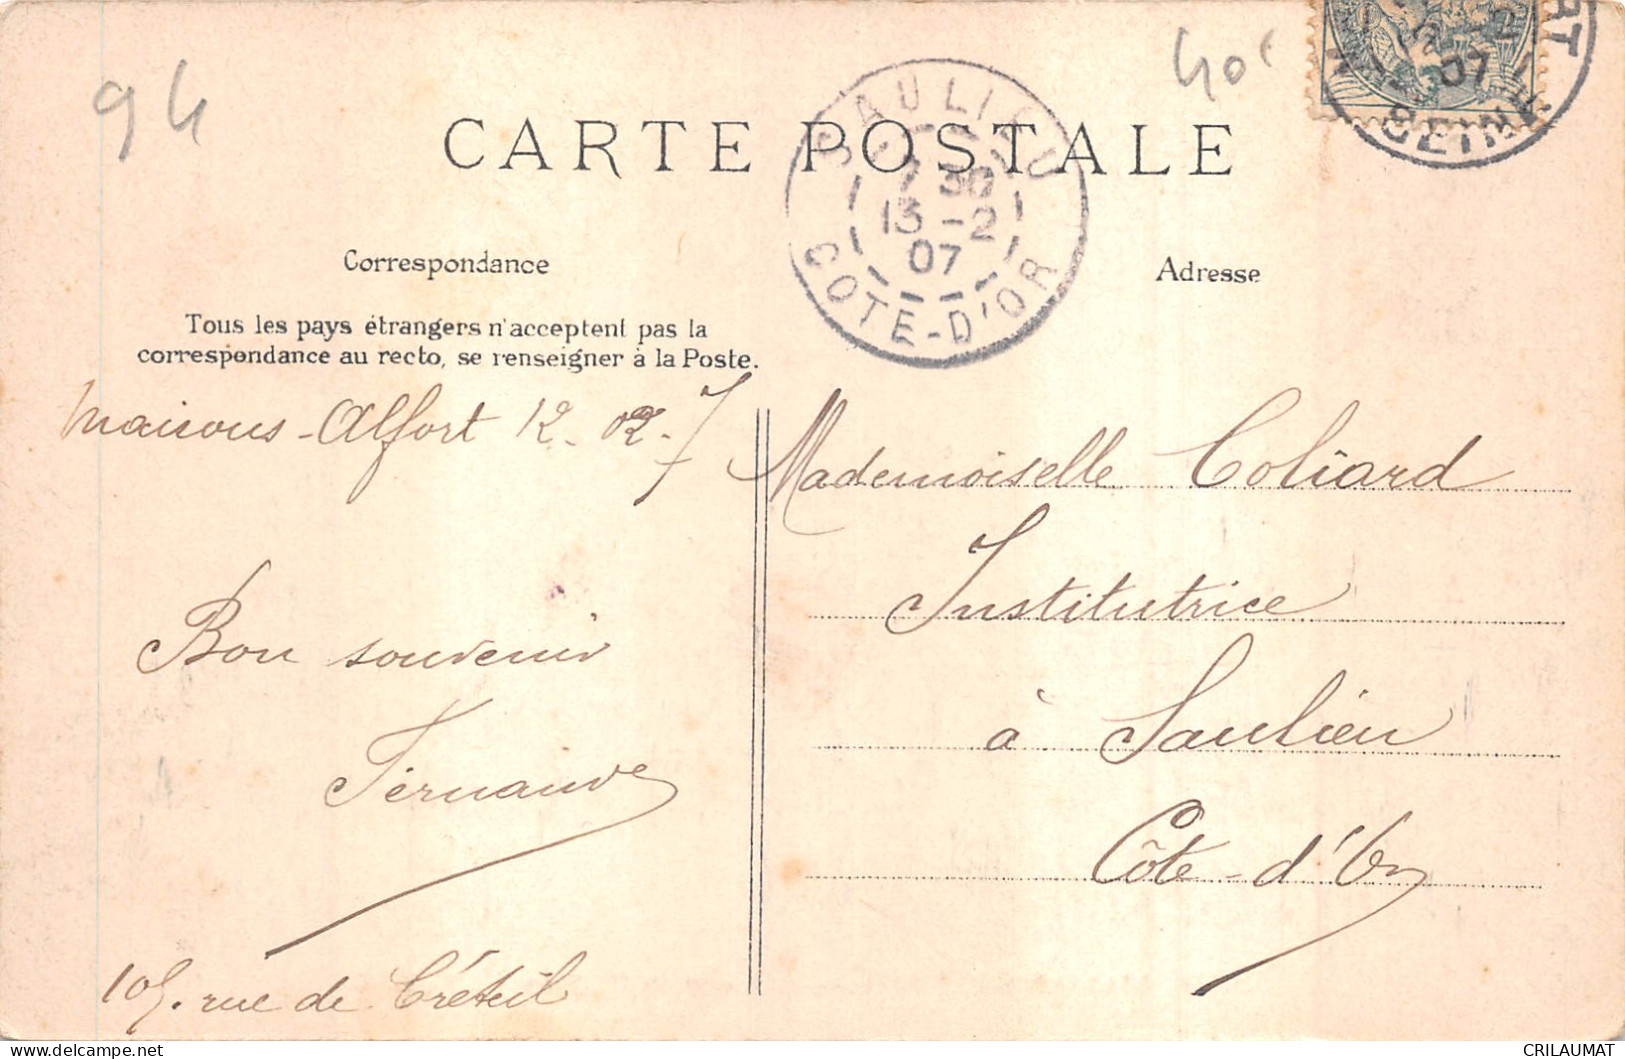 94
40c
CARTE POSTALE
SAULIEU
7 30
13 - 2
07
COTE-D'OR
07
SEINE
Correspondance
Adresse
Tous les pays étrangers n'acceptent pas la
correspondance au recto, se renseigner à la Poste.
Maisons-Alfort 12. 02. 7
Bon souvenir
Fernande
105. rue de Créteil
Mademoiselle Coliard
Institutrice
à Saulieu
Côte-d'Or
CRILAUMAT